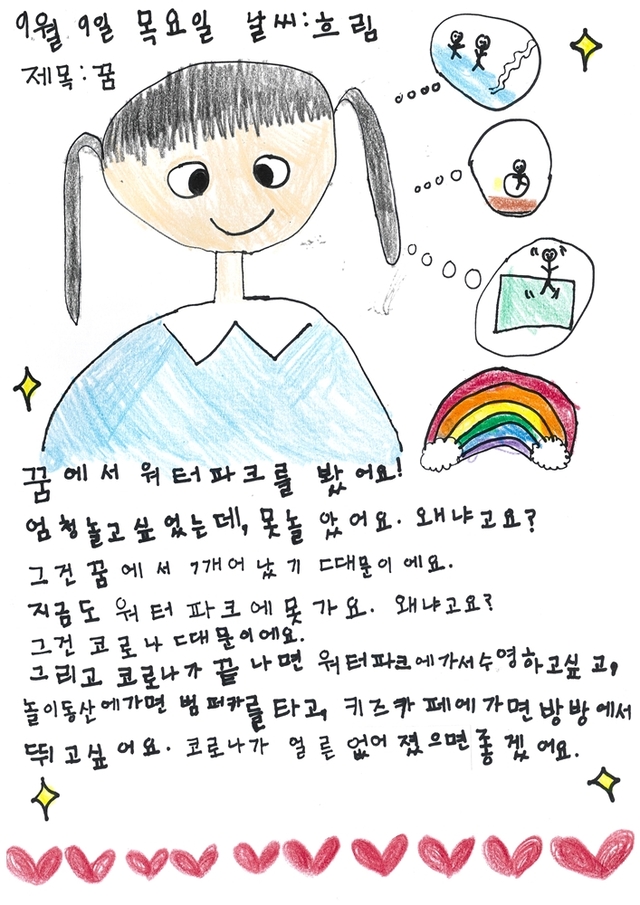 9월 9일 목요일 날씨:흐림
제목:꿈
꿈에서 워터파크를 봤어요!
엄청놀고싶었는데, 못놀았어요. 왜냐고요?
그건 꿈에서 깨어났기 때문이에요.
지금도 워터파크에못가요. 왜냐고요?
그건 코로나 때문이에요.
그리고 코로나가 끝나면 워터파크에가서수영하고싶고,
놀이동산에가면 범퍼카를타고, 키즈카페에가면방방에서
뛰고싶어요. 코로나가 얼른 없어졌으면좋겠어요.